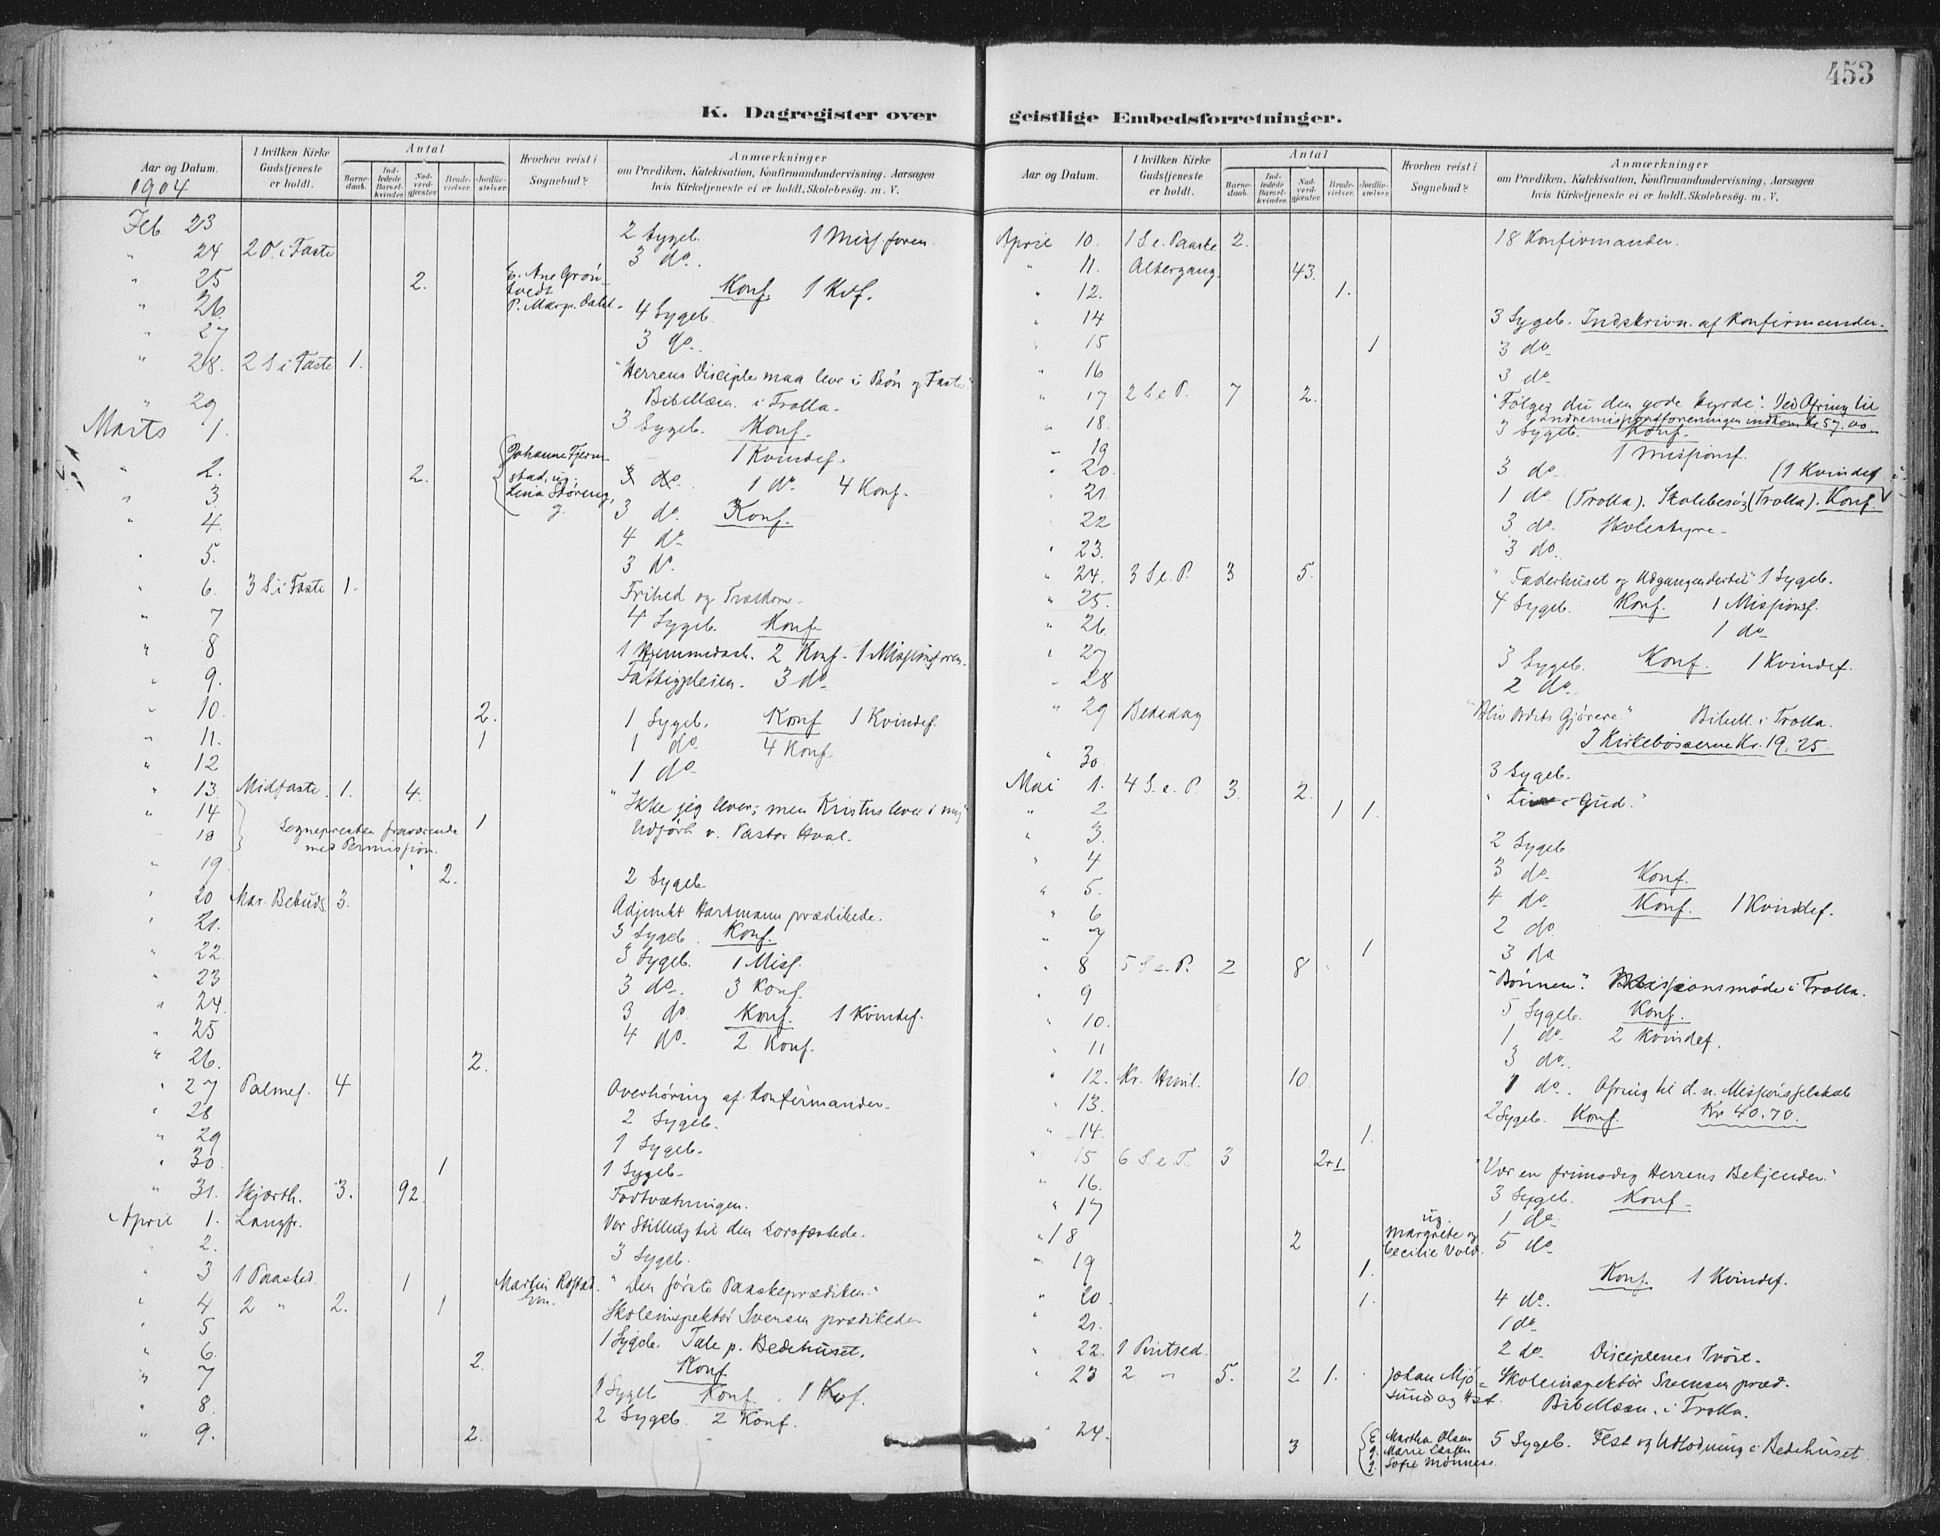 453
K. Dagregister over geistlige Embedsforretninger.
Aar og Datum.
I hvilken Kirke Gudstjeneste er holdt.
Antal
Barnedaab.
Indledede Barselkvinder.
Nadverdgjester.
Brudevielser.
Jordfæstelser.
Hvorhen reist i Sognebud?
Anmærkninger
om Prædiken, Katekisation, Konfirmandundervisning, Aarsagen
hvis Kirketjeneste ei er holdt, Skolebesøg. m. V.
1904
Feb. 23 2 Sygeb. 1 Miss foren.
" 24 2 O. i Faste 3 do.
" 25 2. Konf. 1 Kvf.
" 26. 4 Sygeb.
" 27 3 do.
" 28. 2 S i Faste 1. "Herrens Disciple maa leve i Bøn og Faste"
" 29 Bibellæsn. i Trolla.
Marts 1. 3 Sygeb. Konf.
1 Kvindef.
" 2. 2. Johanne stad, ug. 3 do. 1 do 4 Konf.
" 3. 3 do. Konf.
" 4. 4 do
" 5. 3 do.
" 6. 3 S i Faste 1. Frihed og Trældom.
" 7 4 Sygeb. Konf.
" 8 2 Konf. 1 Missionsforen.
" 9. Fattigpleien. 3 do
" 10. 2. 1 Sygeb. Konf 1 Kvindef.
" 11. 1 1 do 4 Konf.
" 12 1 do
" 13. Midfaste. 1. 4. "Ikke jeg lever; men Kristus lever i mig"
" 14 Sognepresten fraværende 1 Udført v. Pastor Hval.
- 18 med Permission.
" 19 2. 2 Sygeb
" 20 Mar. Bebuds. 3. Adjunkt Hartmann prædikede.
" 21. 3 Sygeb. Konf.
" 22 3 Sygeb. 1 Miss.
" 23 3 do. 3 Konf.
" 24. 3 do. Konf. 1 Kvindef.
" 25 4 do. 2 Konf.
" 26. 2.
" 27 Palmes. 4 Overhøring af Konfirmander.
" 28 2 Sygeb.
" 29 1 Sygeb.
" 30. 1 1 Sygeb.
" 31. Skjærth. 3. 92. Fodtvætningen.
April 1. Langfr. Vor Stilling til den Korsfæstede.
" 2. 3 Sygeb.
" 3 1 Paasked. 1 Martin "Den første Paaskeprædiken."
" 4 2 " 2. 1 Skoleinspektør Svensen prædikede
" 5 1 Sygeb. Tale p. Bedehuset.
" 6. 2. Konf.
" 7 1 Sygeb Konf. 1 Kvf.
" 8. 2 Sygeb. 2 Konf.
" 9. 2.
Aar og Datum.
I hvilken Kirke Gudstjeneste er holdt.
Antal
Barnedaab.
Indledede Barselkvinder.
Nadverdgjester.
Brudevielser.
Jordfæstelser.
Hvorhen reist i Sognebud?
Anmærkninger
om Prædiken, Katekisation, Konfirmandundervisning, Aarsagen
hvis Kirketjeneste ei er holdt, Skolebesøg. m. V.
April 10. 1 S. e. Paaske 2. 18 Konfirmander.
" 11. Altergang. 43.
" 12. 1.
" 14 3 Sygeb. Indskrivn. af Konfirmander.
" 15 1 3 do.
" 16 3 do.
" 17 2 S e P. 7 2. "Følger du den gode Hyrde". Ved Ofring til
indkom Kr 57.00
" 18. 3 Sygeb. Konf.
" 19 1 Missionsf.
" 20. 3 do. (1 Kvindef
" 21. 1 do (Trolla). Skolebesøg (Trolla). Konf.
" 22 3 do. Skolestyre.
" 23. 3 do.
" 24. 3 S e. P. 3 5. "Faderhuset og Adgangen dertil" 1 Sygeb.
" 25. 4 Sygeb. Konf. 1 Missionsf.
" 26. 1 do
" 27 3 Sygeb. Konf. 1 Kvindef.
" 28 2 do.
" 29 Bededag "Bliv Ordets Gjørere" Bibell. i Trolla.
I Kirkebøsserne Kr. 19,25
" 30. 3 Sygeb.
Mai 1. 4 S. e. P. 3. 2. i Gud."
" 2 1 1.
" 3. 2 Sygeb.
" 4 3 do. Konf.
" 5. 4 do. Konf. 1 Kvindef.
" 6 2 do
" 7 1 3 do
" 8 5 S e. P. 2 8 "Bønnen". Missionsmøde i Trolla.
" 9 5 Sygeb. Konf.
" 10. 1 do. 2 Kvindef.
" 11 3 do.
" 12. Kr. Himl. 10. 1 do. Ofring til d. n. Missionsselskab
" 13. 2 Sygeb. Konf. Kr 40.70.
" 14. 1.
" 15 6 S. e P. 3 2+1 "Vær en frimodig Herrens Bekjender."
" 16. 3 Sygeb. Konf.
" 17 1 do.
" 18 2 ug. Margrete og Cecilie Vold. 5 do
" 19 1. Konf. 1 Kvindef.
" 20 1. 4 do.
" 21. 1 do
" 22. 1 Pintsed. 2 do.
" 23 2 " 5. 2 1. Johan Skoleinspektør Svensen præd.
Bibellæsn. i Trolla.
" 24. 3 Martha Olsen 5 Sygeb. Fest og Udlodning i Bedehuset.
Marie Larsen
Sofie